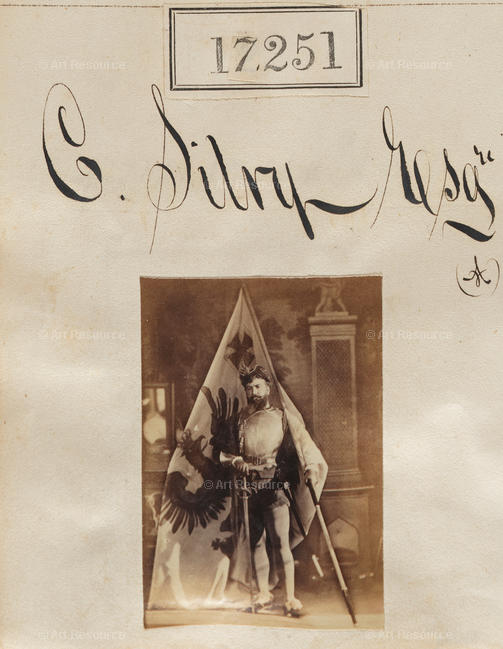 17.251
C. Silvy Esqre
(A)
© Art Resource
© Art Resource
© Art Resource
© Art Resource
© Art Resource
© Art Resource
© Art Resource
© Art Resource
© Art Resource